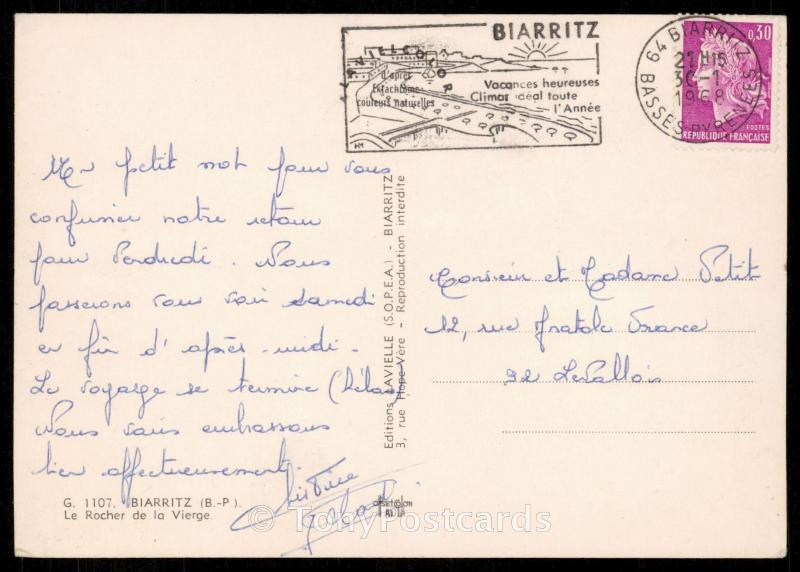 BIARRITZ
LAVIELLECOLOR
d'après
Ektachrome
couleurs naturelles
Vacances heureuses
Climat idéal toute
l'Année
64 BIARRITZ
21H15
30-1
1968
BASSES-PYRENEES
0,30
POSTES
REPUBLIQUE FRANÇAISE
Un petit mot pour vous
confirmer notre retour
pour Vendredi. Nous
passerons vous voir samedi
en fin d'après-midi.
Le voyage se termine (hélas)
Nous vous embrassons
bien affectueusement.
Editions LAVIELLE (S.O.P.E.A.) - BIARRITZ
3, rue Hope-Vère - Reproduction interdite
Monsieur et Madame Petit
12, rue Anatole France
92 Levallois
G. 1107. BIARRITZ (B.-P.).
Le Rocher de la Vierge
© TonyPostcards